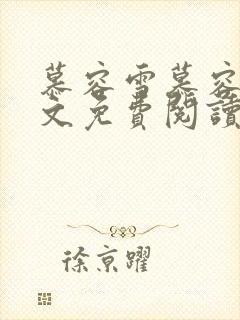 慕容雪慕容
文免費閱讀
徐京躍